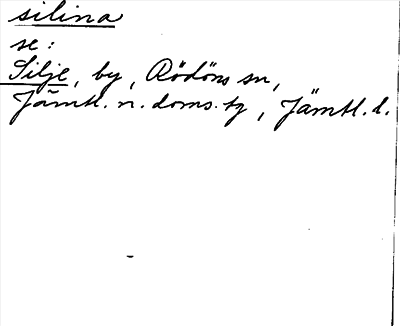 silina
se:
Silje, by, Rödöns sn,
Jämtl. n. doms. tg, Jämtl. l.